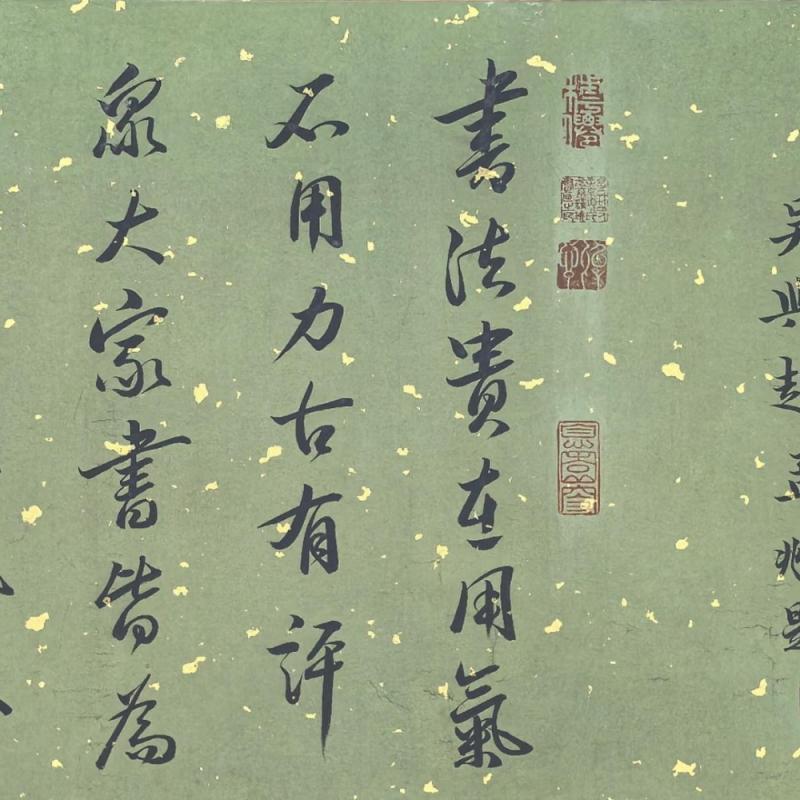 吳興趙孟頫題
書法貴在用氣
不用力古有評
衆大家書皆為